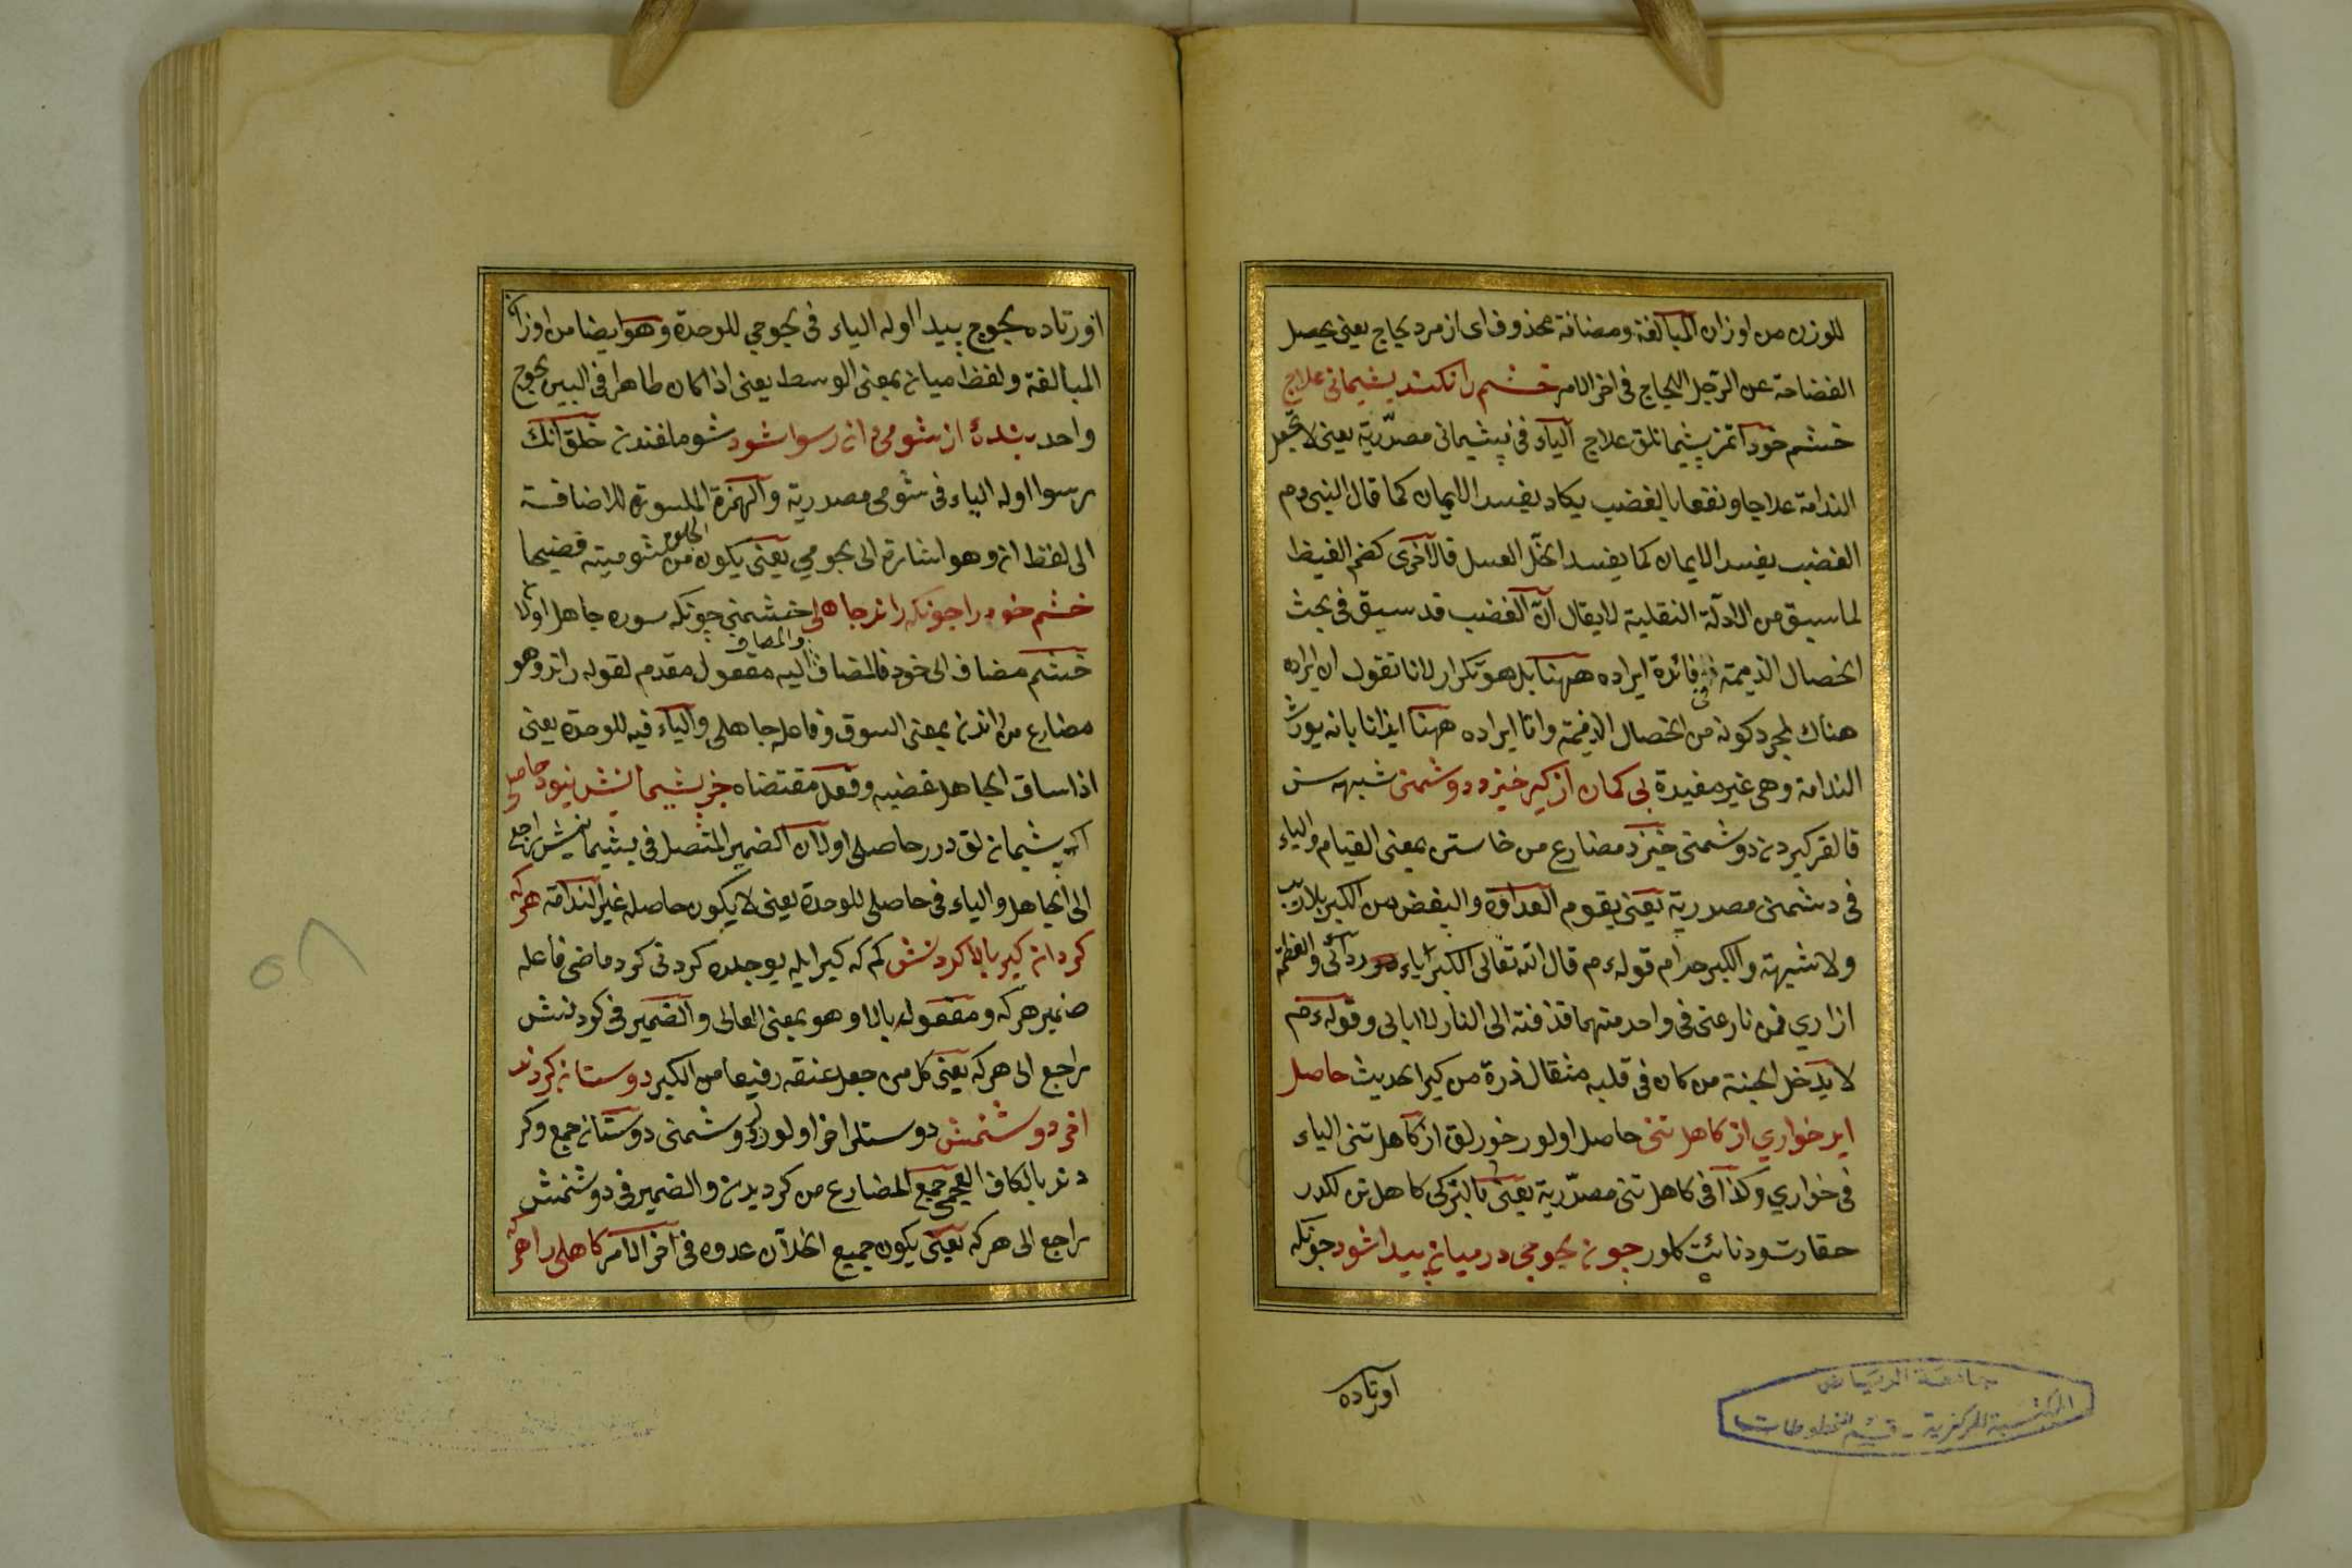 للوزن من اوزان المبالغة ومضافة محذوف اى از مرد لجاج يعنى يحصل
الفضاحة عن الرّجل اللجاج فى اخر الامر خشم را نكند پشيمانى علاج
خشم خود اتمز پشيمانلق علاج الياء فى پشيمانى مصدّرية يعنى لا تجعل
الندامة علاجا ونفعا بالغضب يكاد يفسد الايمان كما قال النبى م
الغضب يفسد الايمان كما يفسد الخلّ العسل قال اخرى كضم الغيظ
لما سبق من الادلّة النقلية لا يقال انّ الغضب قد سبق فى بحث
الخصال الذميمة فائدة ايراده ههنا بل هو تكرار لانا نقول ان ايراده
هناك لمجرد كونه من الخصال الذميمة واما ايراده ههنا ايذانا بانه يورث
الندامة وهى غير مفيدة بى كمان از كبر خيزد دوشمنى شبهه سز
قالقر كبردن دوشمنى خيزد مضارع من خاستن بمعنى القيام والياء
فى دشمنى مصدرية يعنى يقوم العداوة والبغض من الكبر بلا ريب
ولا شبهة والكبر حرام قوله م قال الله تعالى الكبرياء ردائى والعظمة
ازاري فمن نازعنى فى واحد منهما قذفته الى النار لا ابالى وقوله م
لا يدخل الجنة من كان فى قلبه مثقال ذرة من كبر الحديث حاصل
ايد خواري از كاهل تنى حاصل اولور خورلق از كاهل تنى الياء
فى خواري وكذا فى كاهل تنى مصدّرية يعنى بالتركى كاهل تن لكدن
حقارت ودنائت كلور چون لجوجى در ميان پيدا شود چونكه
اورتاده
جامعة الرياض
المكتبة المركزية - قسم المخطوطات
اورتاده لجوج پيدا اوله الياء فى لجوجي للوحدة وهو ايضا من اوزان
المبالغة ولفظ ميان بمعنى الوسط يعنى اذا كان ظاهرا فى البين لجوج
واحد بندۀ از شومى ان رسوا شود شوملغندن خلق انك
رسوا اوله الياء فى شومى مصدرية والهمزة المكسورة للاضافة
الى لفظ ان وهو اشارة الى لجوجي يعنى يكون من شوميته فضيحا
خشم خود را چونكه راند جاهلى خشمنى چونكه سوره جاهل اولا
خشم مضاف الى خود فالمضاف والمضاف اليه مفعول مقدم لقوله راند وهو
مضارع من راندن بمعنى السوق وفاعله جاهلى والياء فيه للوحدة يعنى
اذا ساق الجاهل غضبه وفعل مقتضاه جز پشيمانيش نبود حاصلى
پشيمانلق در حاصلى اولان الضمير المتصل فى پشيمانيش راجع
الى الجاهل والياء فى حاصلى للوحدة يعنى لا يكون حاصله غير الندامة هركه
كرد از كبر بالا كردنش كم كه كبر ايله يوجلده كردنى كرد ماضى فاعله
ضمير هركه ومفعوله بالا وهو بمعنى العالى والضمير فى كردنش
راجع الى هركه يعنى كل من جعل عنقه رفيعا من الكبر دوستان كردند
اخر دوشمنش دوستلر اخر اولور دوشمنى دوستان جمع وكر
دند بالكاف العجمى جمع المضارع من كرديدن والضمير فى دوشمنش
راجع الى هركه يعنى يكون جميع الخلان عدوه فى اخر الامر كاهلى را هركه